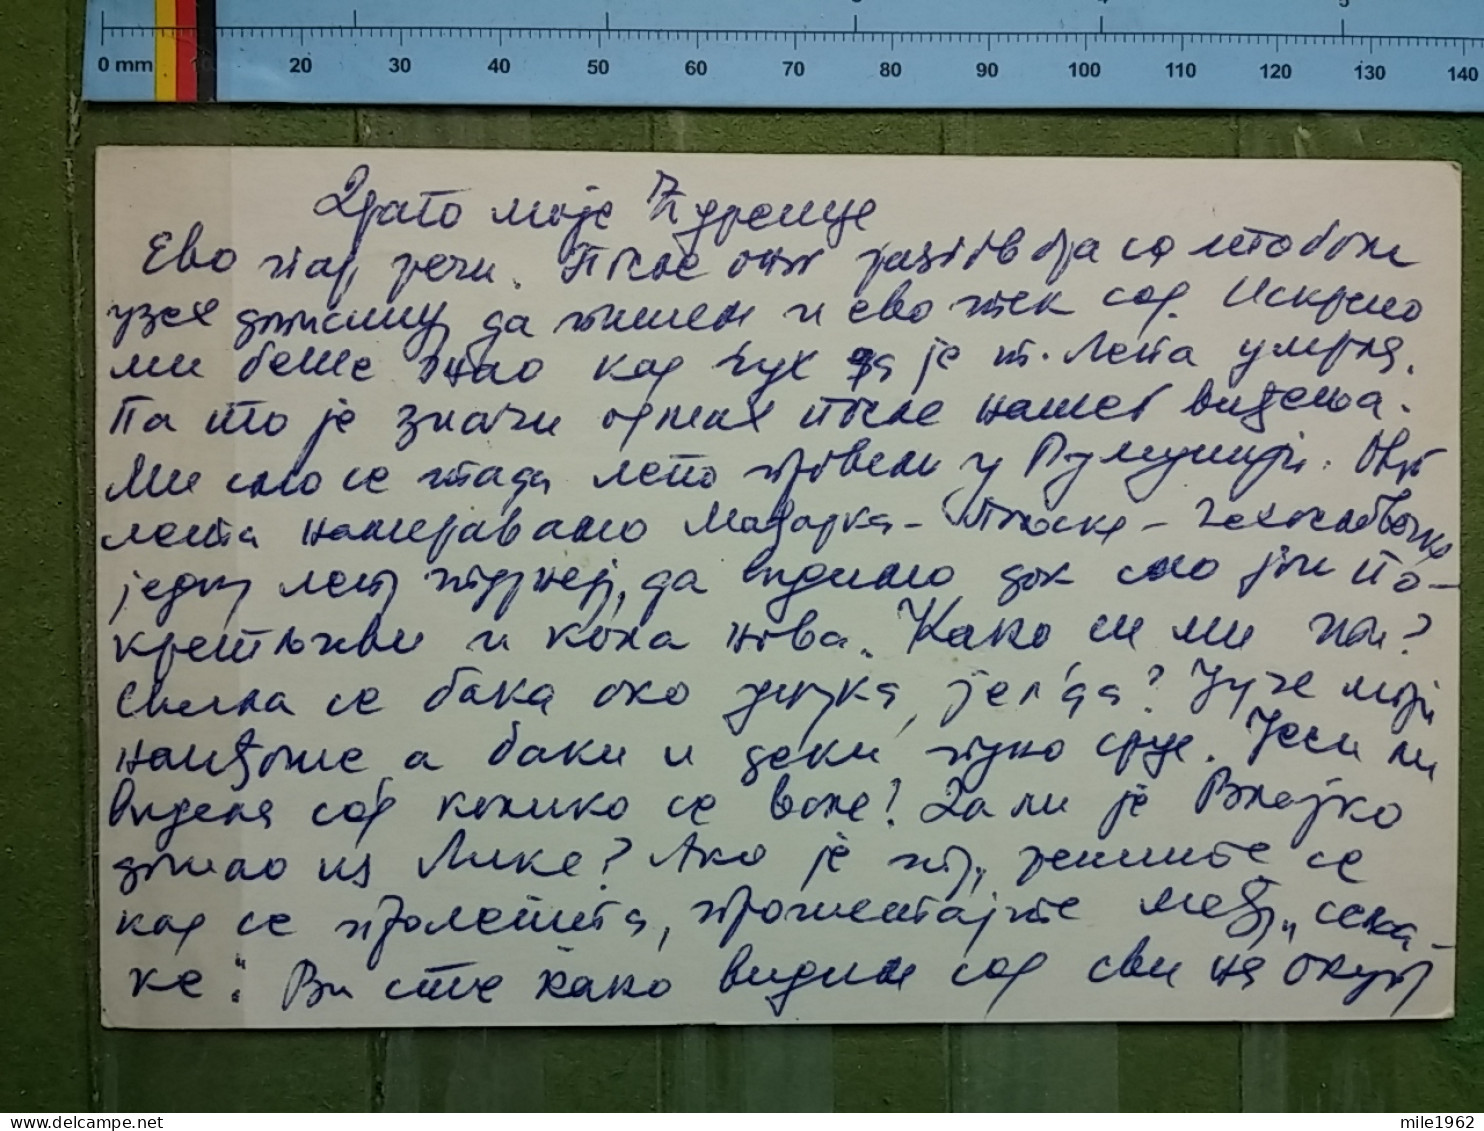 0 mm 10 20 30 40 50 60 70 80 90 100 110 120 130 140
3 4 5
Драго моје
Ево пар речи. После оног разговора са тобом
узех дописницу да пишем и ево тек сад. Искрено
ми беше жао кад чух да је т. Лепа умрла.
Па то је значи одмах после нашег виђења.
Ми смо се тада лепо провели у Румунији. Овог
лета намеравамо Мађарка - Пољска - Чехословачка
једну лепу турнеју, да видимо док смо још по-
кретљиви и кола нова. Како си ми ти?
Свила се бака око унука, јел'да? Јуче моји
наиђоше а баки и деки пуно срце. Јеси ли
видела сад колико се воле? Да ли је Влајко
дошао из Лике? Ако је ту, решите се
кад се пролепша, прошетајте међу „сења-
ке". Ви сте како видим сад сви на окупу
mile1962